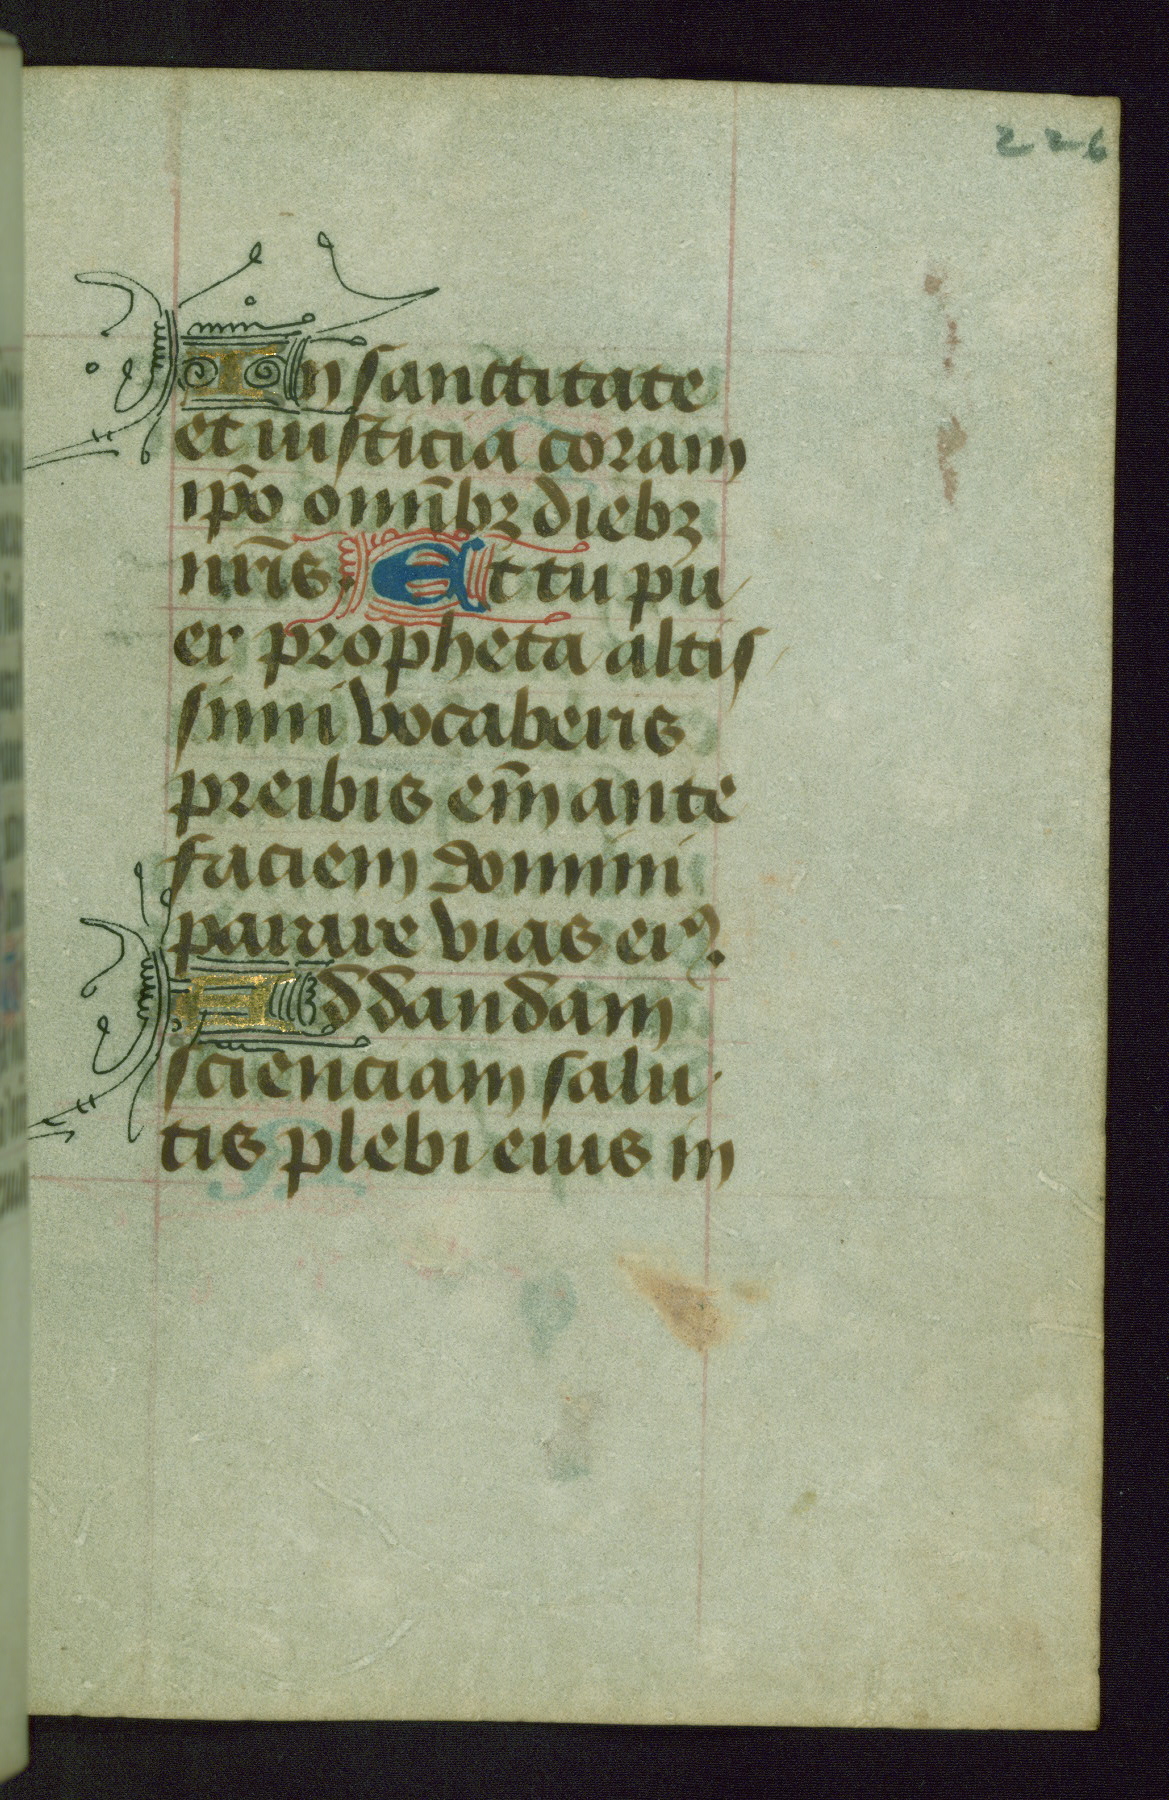 226
In sanctitate
et iusticia coram
ip̄o omnībꝫ diebꝫ
nr̄is. Et tu pu
er propheta altis
simi vocaberis
preibis em̄ ante
faciem domini
parare vias eiꝰ.
Ad dandam
scienciam salu
tis plebi eius in